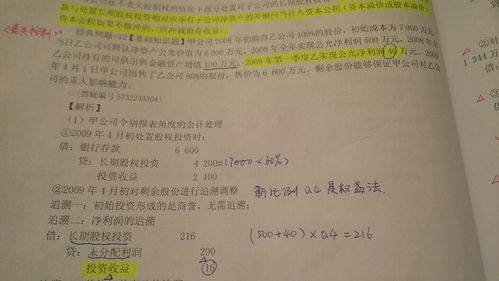 款与处置长期股权投资相对应享有子公司净资产的差额应当计入资本公积(资本溢价或股本溢价),
资本公积如果不够冲的,应冲减留存收益。
<丧失控制>
经典例题-12【基础知识题】甲公司2008年初购得乙公司100%的股份,初始成本为7 000万元,
当日乙公司可辨认净资产公允价值为6 000万元,2008年全年实现公允净利润500万元,2008年末
乙公司持有的可供出售金融资产增值100万元,2009年第一季度乙实现公允净利润40万元,2009
年4月1日甲公司出售了乙公司60%的股份,售价为6 600万元,剩余股份能够保证甲公司对乙公
司的重大影响能力。
[答疑编号5732240304]
【解析】
(1)甲公司个别报表角度的会计处理
①2009年4月初处置股权投资时:
借:银行存款 6 600
贷:长期股权投资 4 200=(7000×60%)
投资收益 2 400
②2009年4月初对剩余股份进行追溯调整 新比例0.4是权益法.
追溯一:初始投资形成的是商誉,无需追溯;
追溯二:净利润的追溯
借:长期股权投资 216 (500+40)×0.4=216
贷:未分配利润 200
投资收益 16
1 344万